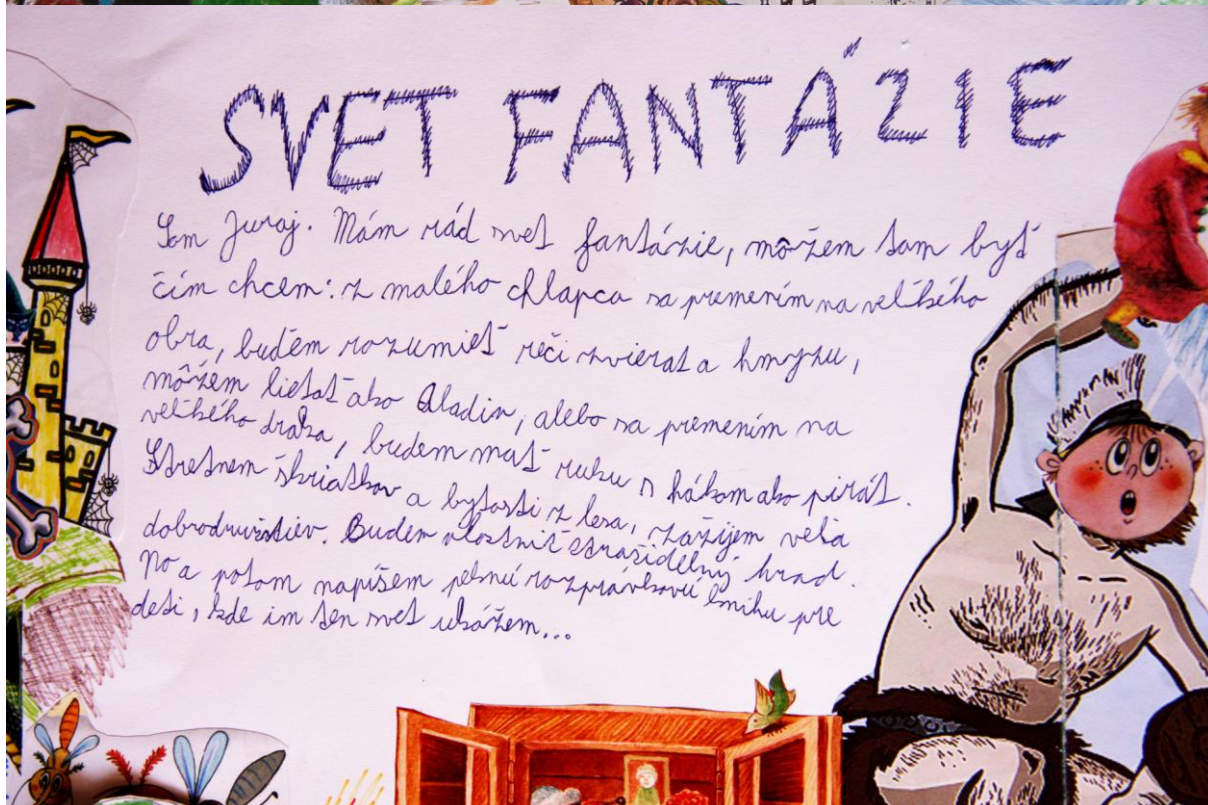 SVET FANTÁZIE
Som Juraj. Mám rád svet fantázie, môžem tam byť
čím chcem: z malého chlapca sa premením na velíkého
obra, budem rozumieť reči zvierat a hmyzu,
môžem lietať ako Aladin, alebo sa premením na
velíkého draka, budem mať ruku s hákom ako pirát.
Stretnem škriatkov a bytosti z lesa, zažijem veľa
dobrodružstiev. Budem vlastniť strašidelný hrad.
No a potom napíšem peknú rozprávkovú knihu pre
deti, kde im ten svet ukážem...